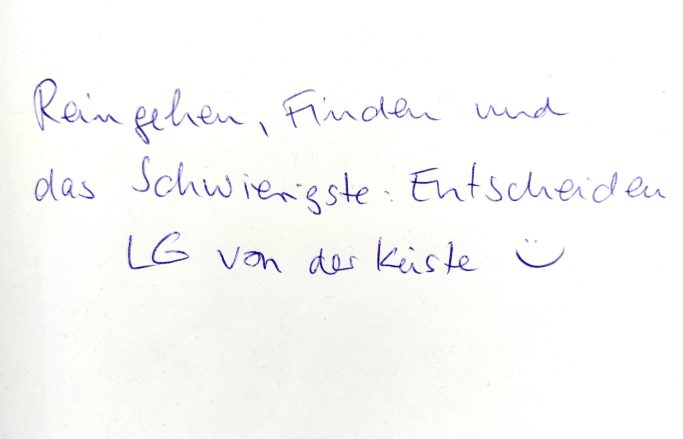 Reingehen, Finden und
das Schwierigste: Entscheiden
LG von der Küste ü